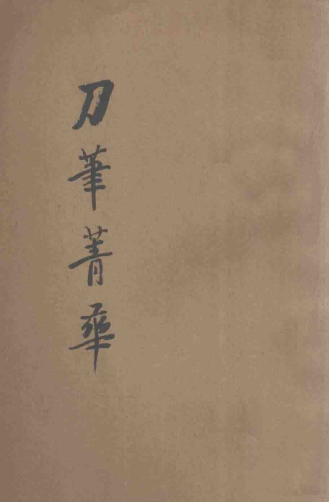 刀筆菁華